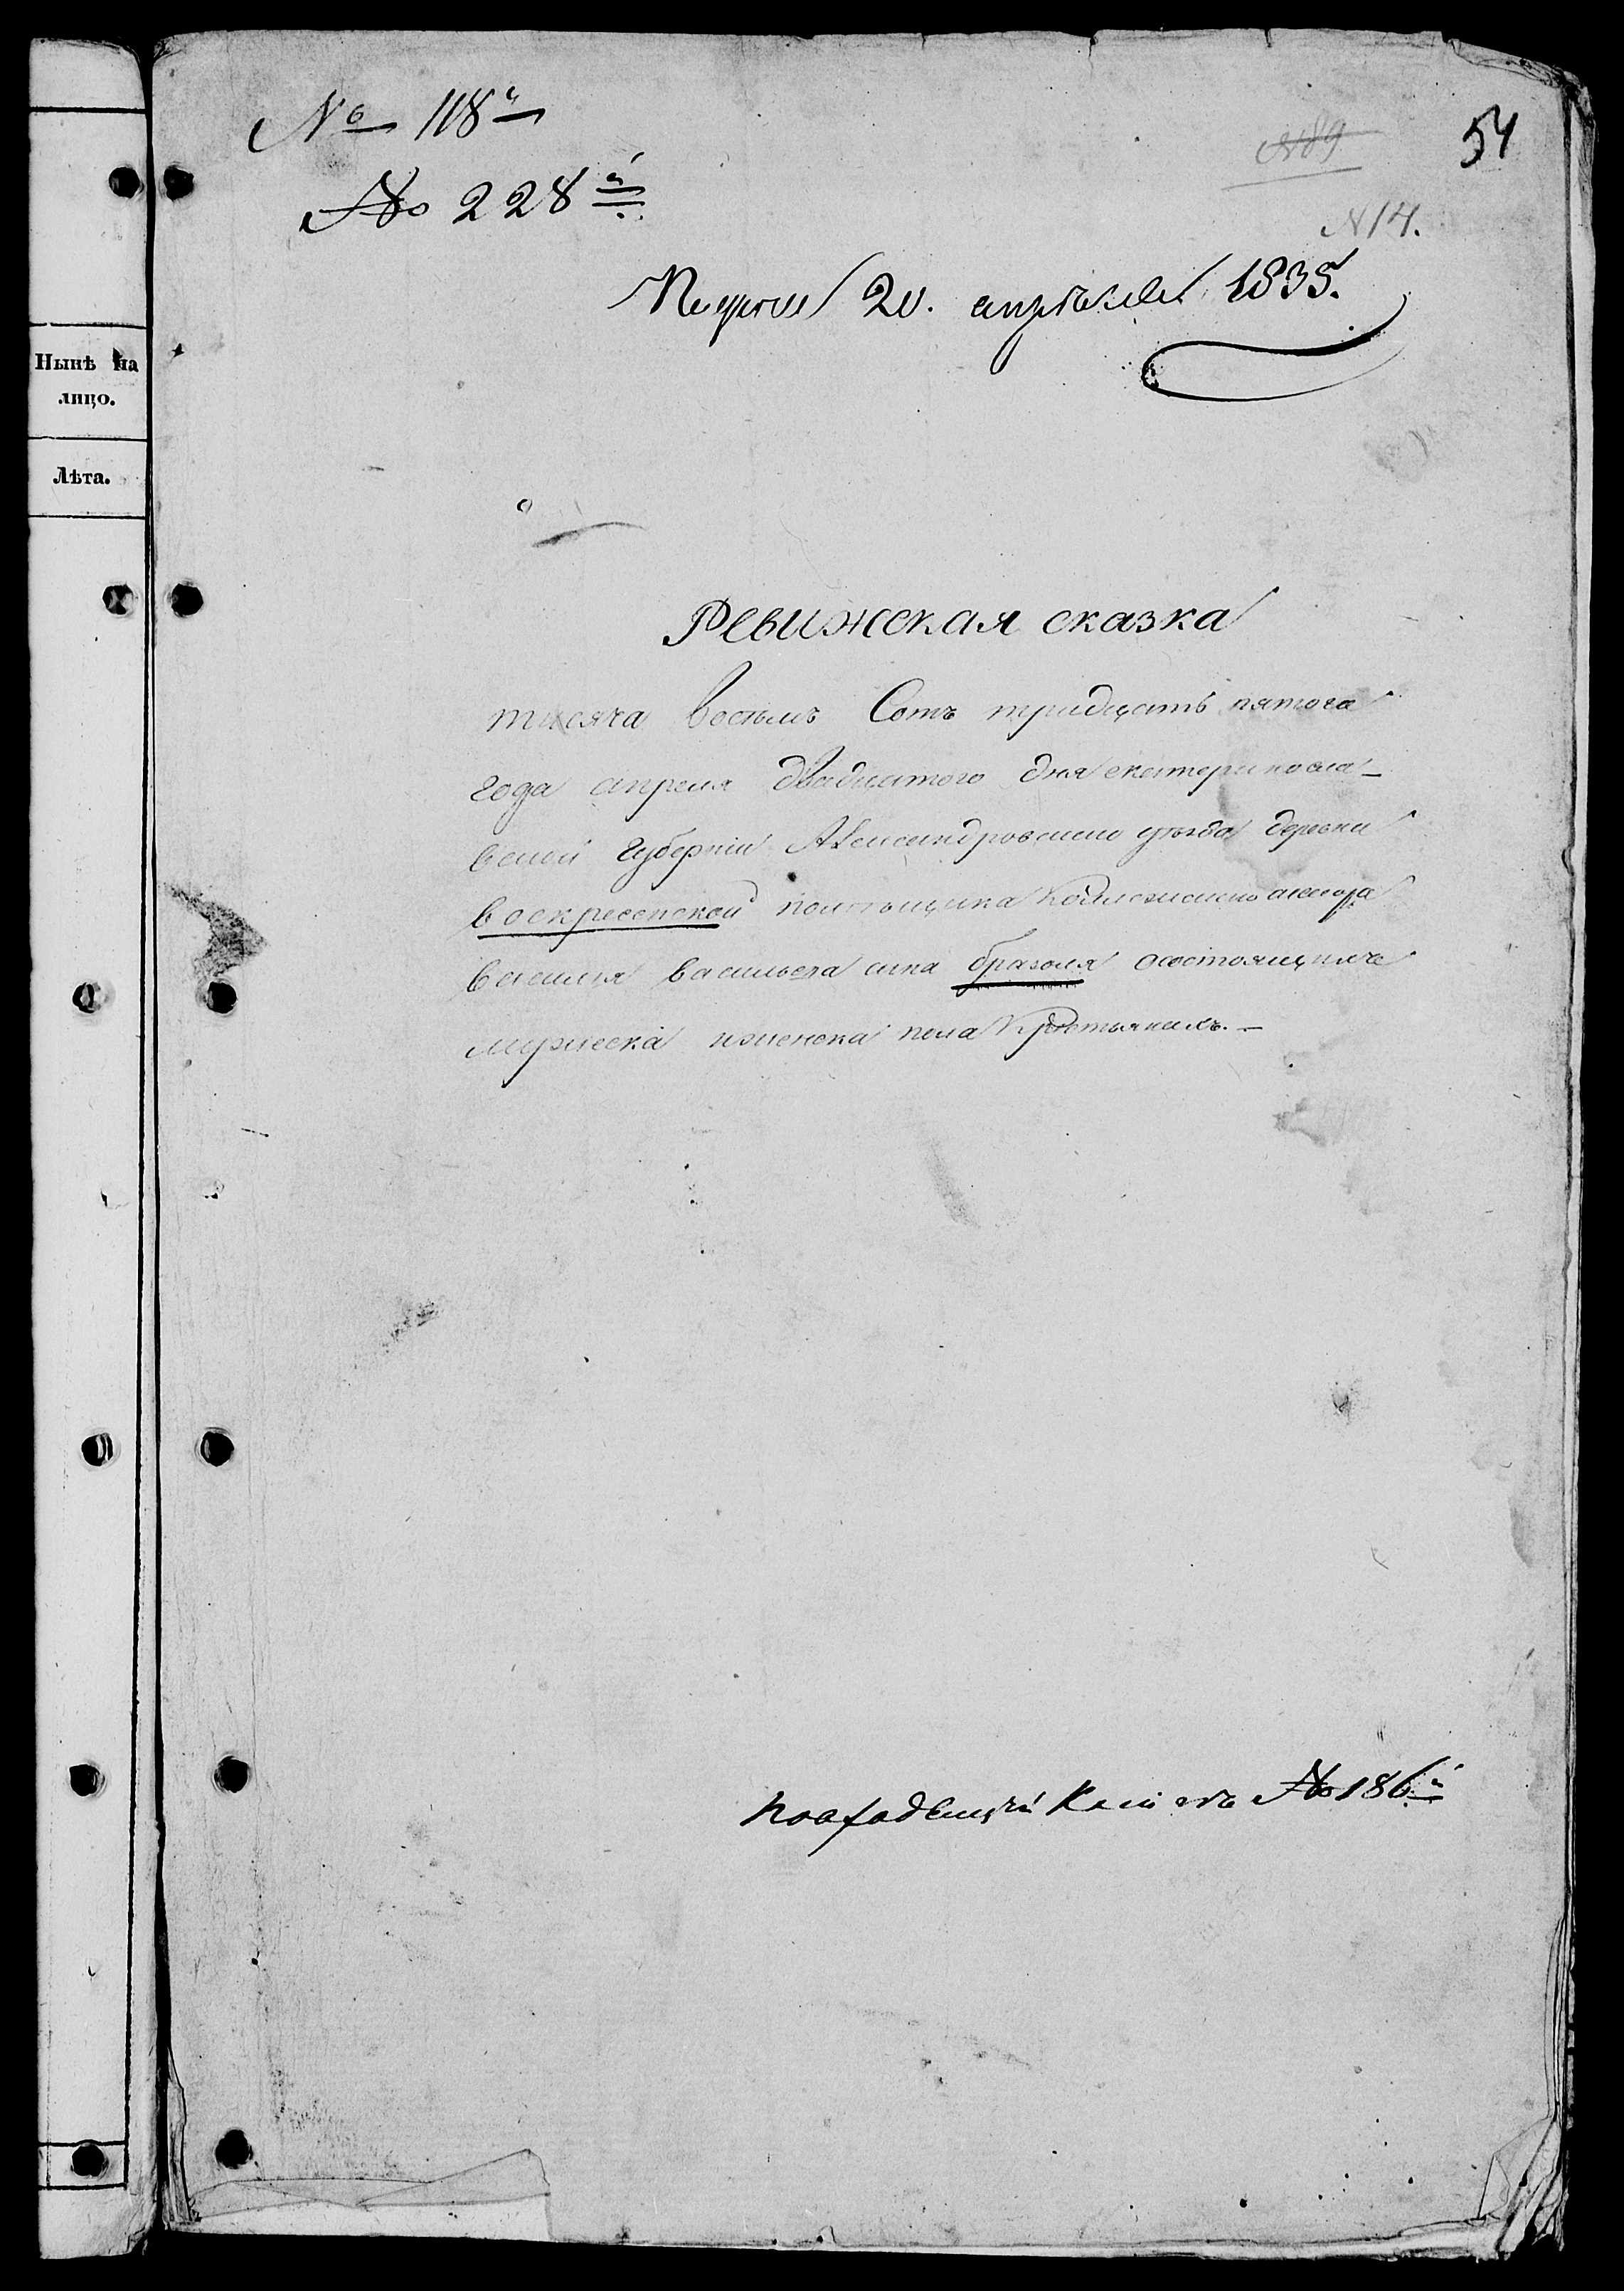 № 118й
№ 228й
№ 89
54
№ 14.
20. апрѣля 1835.
Нынѣ на
лицо.
Лѣта.
Ревижская сказка
тисяча восъмъ Сотъ тридцать пятога
года апреля двадцатого дня екатеринosла-
вской Губернiи Александровскаго уѣзда деревни
воскресенской помѣщика Коллежскаго
василия васильева сина бразоля осостоящихъ
мужеска иженска пола Крестьянахъ. —
№ 186й